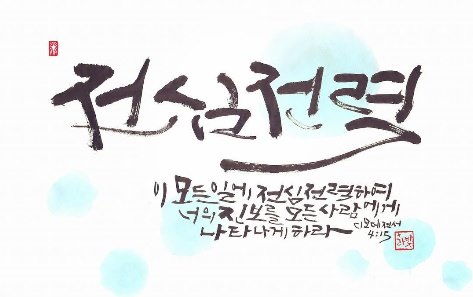 전심전력
이 모든 일에 전심전력하여
너의 진보를 모든 사람에게
나타나게 하라
디모데전서
4:15